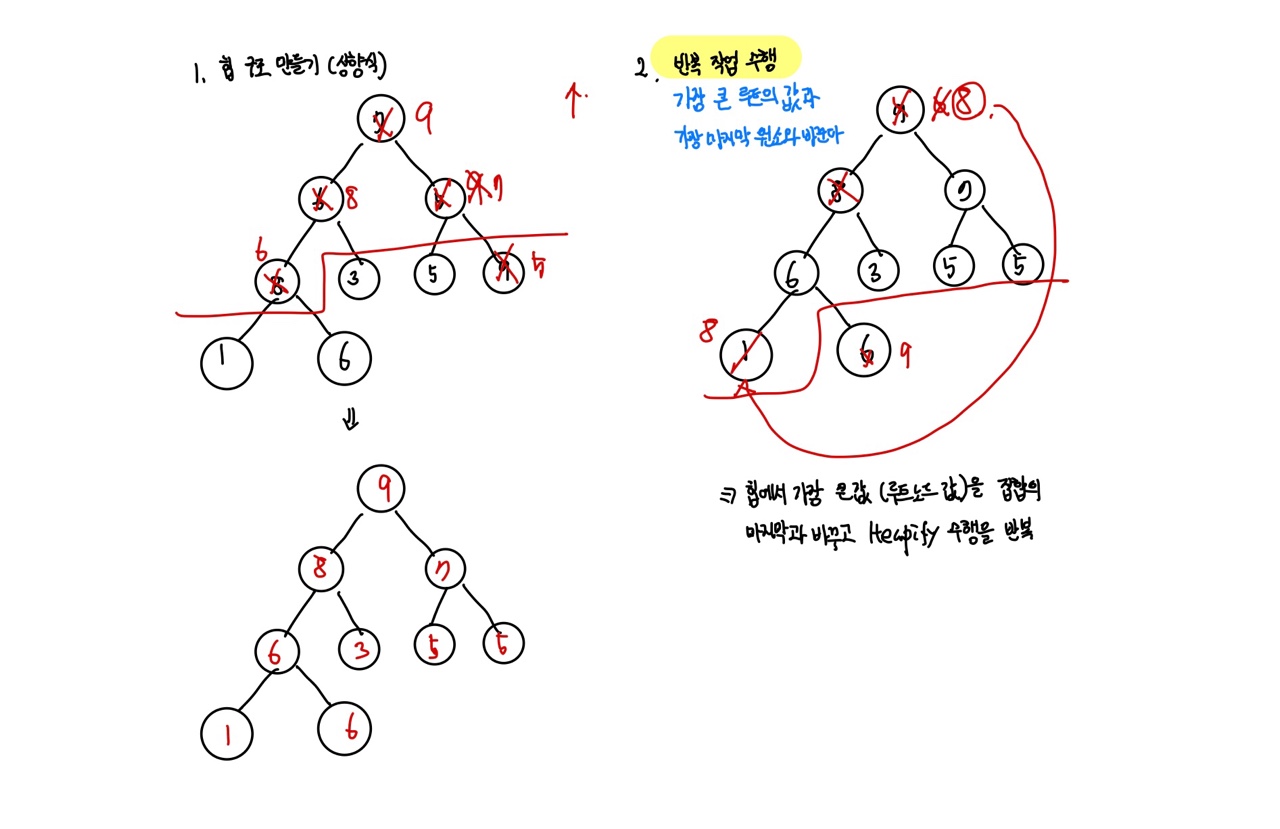 1. 힙 구조 만들기 (상향식)
↑.
9
8
7
6
3
5
5
1
6
⇓
9
8
7
6
3
5
5
1
6
2. 반복 작업 수행
가장 큰 루트의 값과
가장 마지막 원소와 바꾼다
9 6 8
8
7
6
3
5
5
8
1
6
9
⇒ 힙에서 가장 큰값 (루트노드 값)을 집합의
마지막과 바꾸고 Heapify 수행을 반복